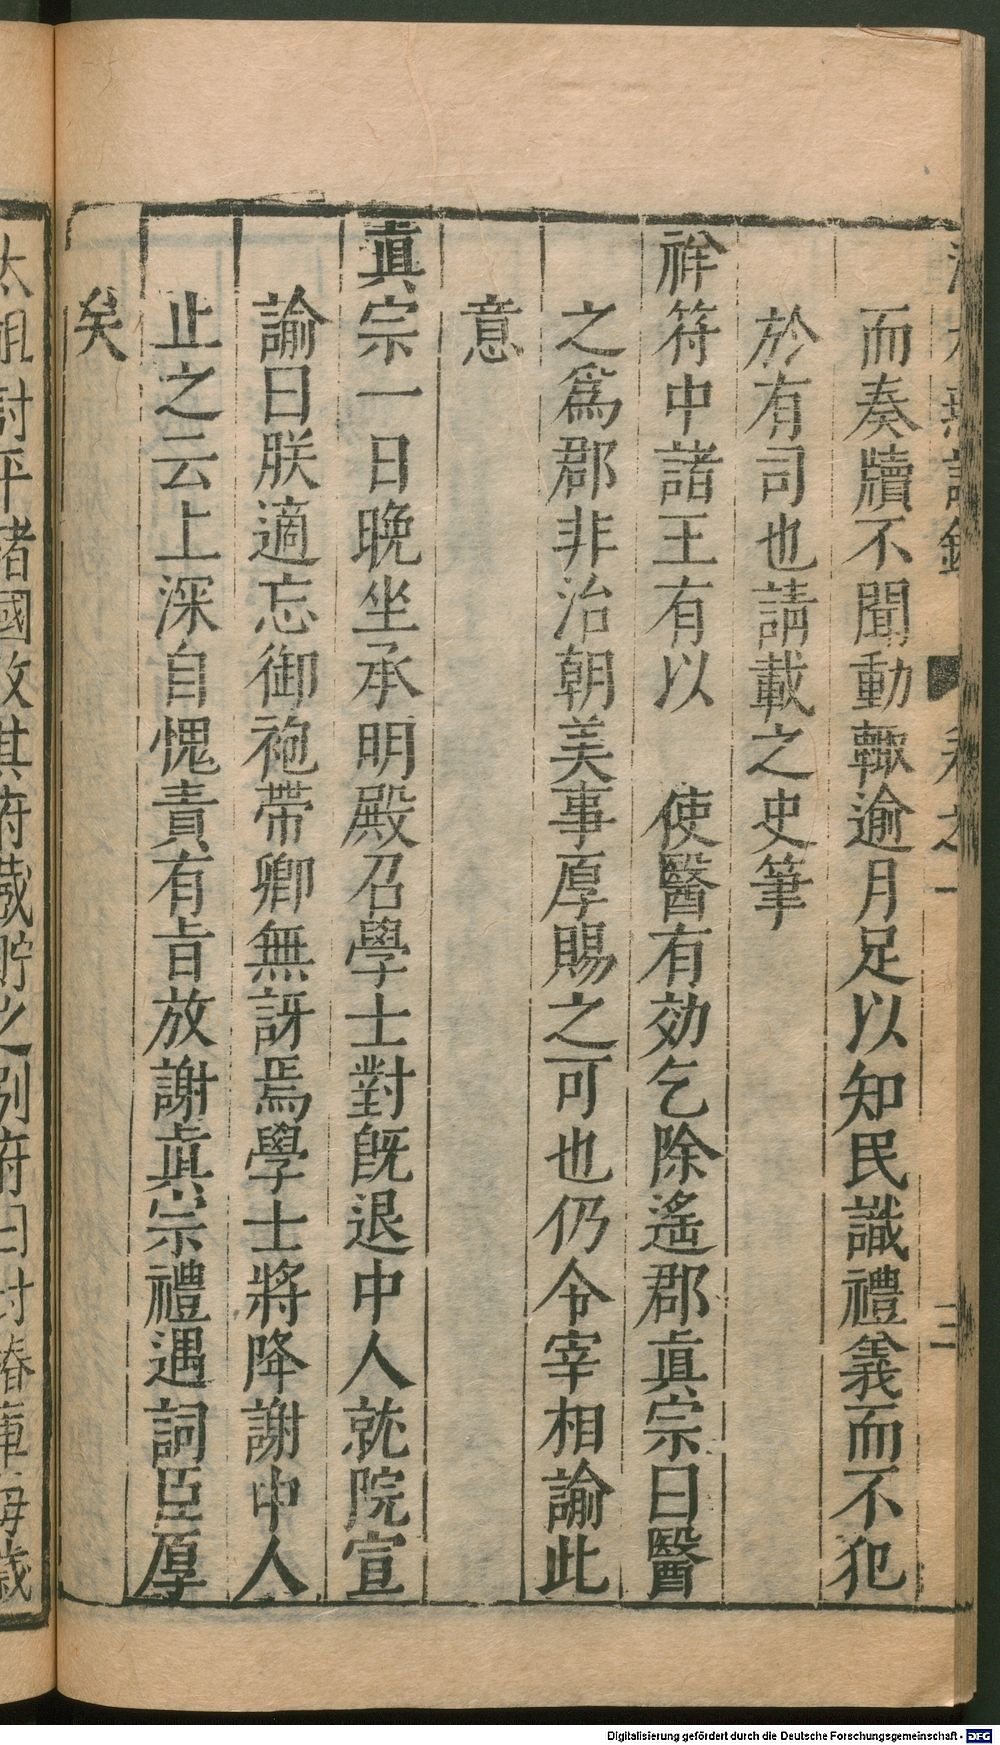 而奏牘不聞動輙逾月足以知民識禮義而不犯
於有司也請載之史筆
祥符中諸王有以　使醫有効乞除遙郡眞宗曰醫
之爲郡非治朝美事厚賜之可也仍令宰相諭此
意
眞宗一日晩坐承明殿召學士對旣退中人就院宣
諭曰朕適忘御袍帶卿無訝焉學士將降謝中人
止之云上深自愧責有旨放謝眞宗禮遇詞臣厚
矣
太祖討平諸國收其府藏貯之別府曰封樁庫每歳
Digitalisierung gefördert durch die Deutsche Forschungsgemeinschaft - DFG